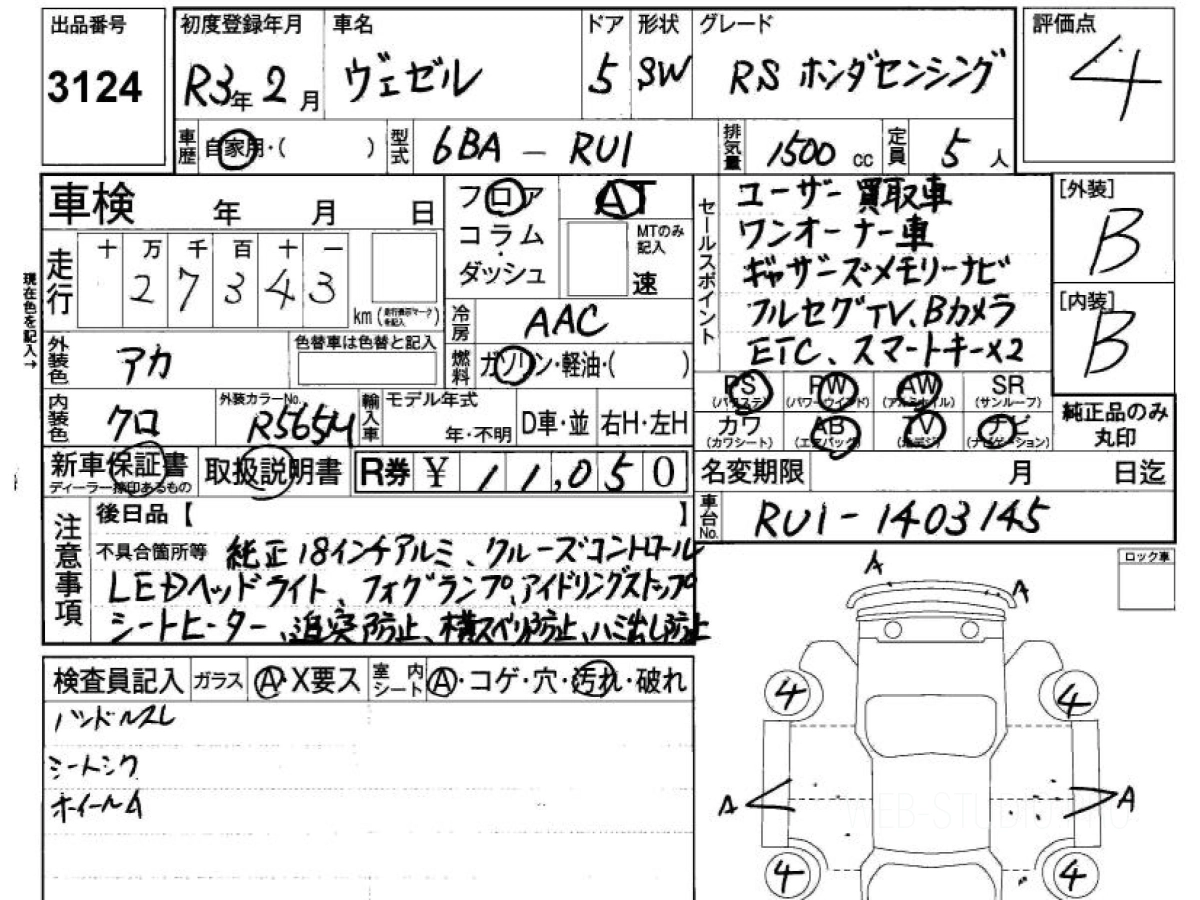 出品番号 初度登録年月 車名 ドア 形状 グレード 評価点
3124 R3年2月 ヴェゼル 5 SW RS ホンダセンシング 4
車歴 自家用・( ) 型式 6BA - RU1 排気量 1500 cc 定員 5人
車検 年 月 日
走行 十 万 千 百 十 一
2 7 3 4 3 km
現在色を記入→
外装色 アカ 色替車は色替と記入
内装色 クロ 外装カラーNo. R565M 輸入車 モデル年式 年・不明 D車・並 右H・左H
フロア AT
コラム・ MTのみ記入
ダッシュ 速
冷房 AAC
燃料 ガソリン・軽油・( )
セールスポイント
ユーザー買取車
ワンオーナー車
ギャザーズメモリーナビ
フルセグTV、Bカメラ
ETC、スマートキー×2
[外装]
B
[内装]
B
PS PW AW SR
(パワステ) (パワーウインド) (アルミホイル) (サンルーフ)
カワ AB TV ナビ
(カワシート) (エアバック) (地デジ) (ナビゲーション)
純正品のみ
丸印
新車保証書 取扱説明書 R券 ¥ 11,050
ディーラー捺印あるもの
名変期限 月 日迄
車台No. RU1-1403145
注意事項 後日品【 】
不具合箇所等 純正18インチアルミ、クルーズコントロール
LEDヘッドライト、フォグランプ、アイドリングストップ
シートヒーター、追突防止、横スベリ防止、ハミ出し防止
ロック車
検査員記入 ガラス A・X要ス 室内シート A・コゲ・穴・汚れ・破れ
ハンドルスレ
シートシワ
ホイールA
A A
4 4
A A
4 4
WEB-STUDIO.PRO